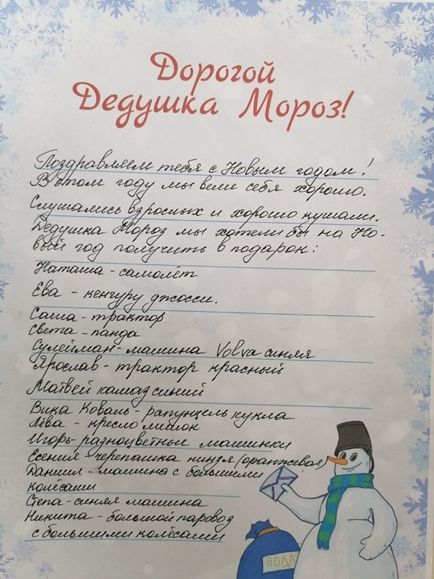 Дорогой
Дедушка Мороз!
Поздравляем тебя с Новым годом!
В этом году мы вели себя хорошо.
Слушались взрослых и хорошо кушали.
Дедушка Мороз мы хотели бы на Но-
вый год получить в подарок:
Наташа - самолёт
Ева - кенгуру джосси.
Саша - трактор
Света - панда
Сулейман - машина Volva синяя
Ярослав - трактор красный
Матвей камаз синий
Вика Коваль - рапунцель кукла
Лёва - кресло мешок
Игорь - разноцветные машинки
Есения - черепашка ниндзя (оранжевая)
Даниил - машина с большими
колёсами
Степа - синяя машина
Никита - большой паровод
с большими колёсами
ПОДА